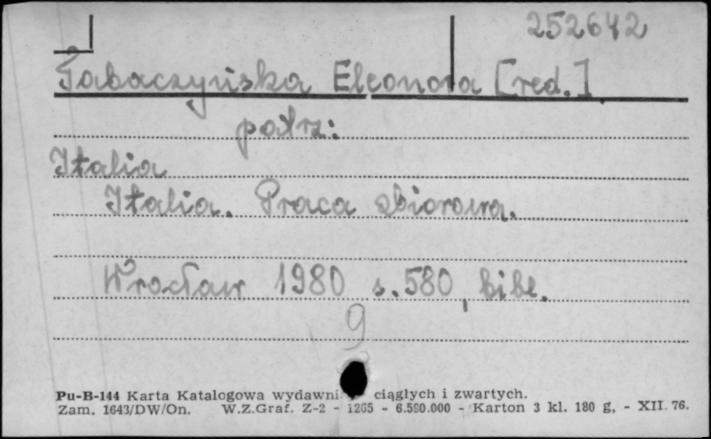 252642
Tabaczyńska Eleonora [red.]
patrz:
Italia
Italia. Praca zbiorowa.
Wrocław 1980 s. 580, bibl.
9
Pu-B-144 Karta Katalogowa wydawni ciągłych i zwartych.
Zam. 1643/DW/On. W.Z.Graf. Z-2 - 1265 - 6.590.000 - Karton 3 kl. 180 g, - XII. 76.